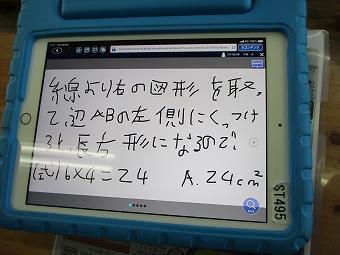 線より右の図形を取っ
て辺ABの左側にくっつけ
ると長方形になるので
(式)6×4=24 A. 24cm²
ST495